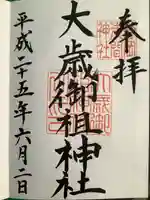 奉拝
大歳御祖神社
平成二十五年六月二日